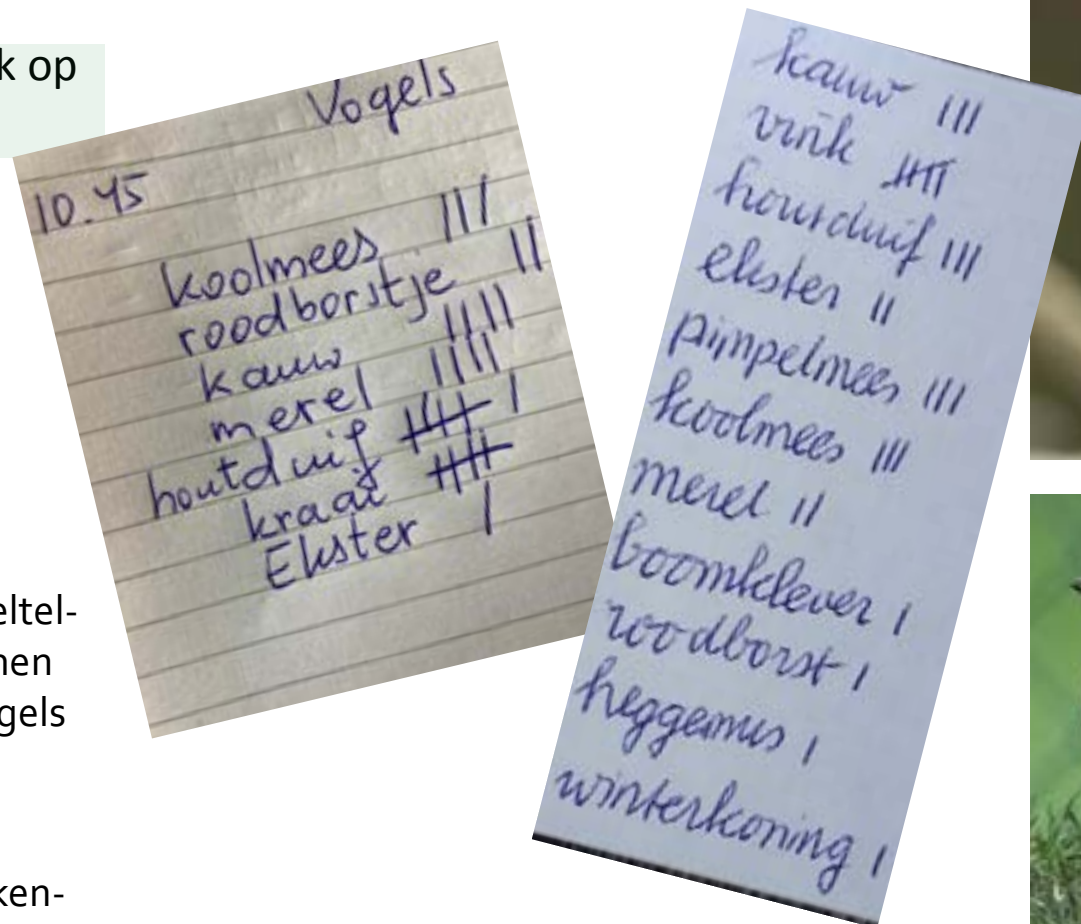 k op
Vogels
10.45
koolmees |||
roodborstje ||
kauw ||||
merel ||||
houtduif 卌 |
kraai 卌
Ekster |
eltel-
nen
gels
ken-
kauw |||
vink 卌
houtduif |||
ekster ||
pimpelmees |||
koolmees |||
merel ||
boomklever |
roodborst |
heggemus |
winterkoning |